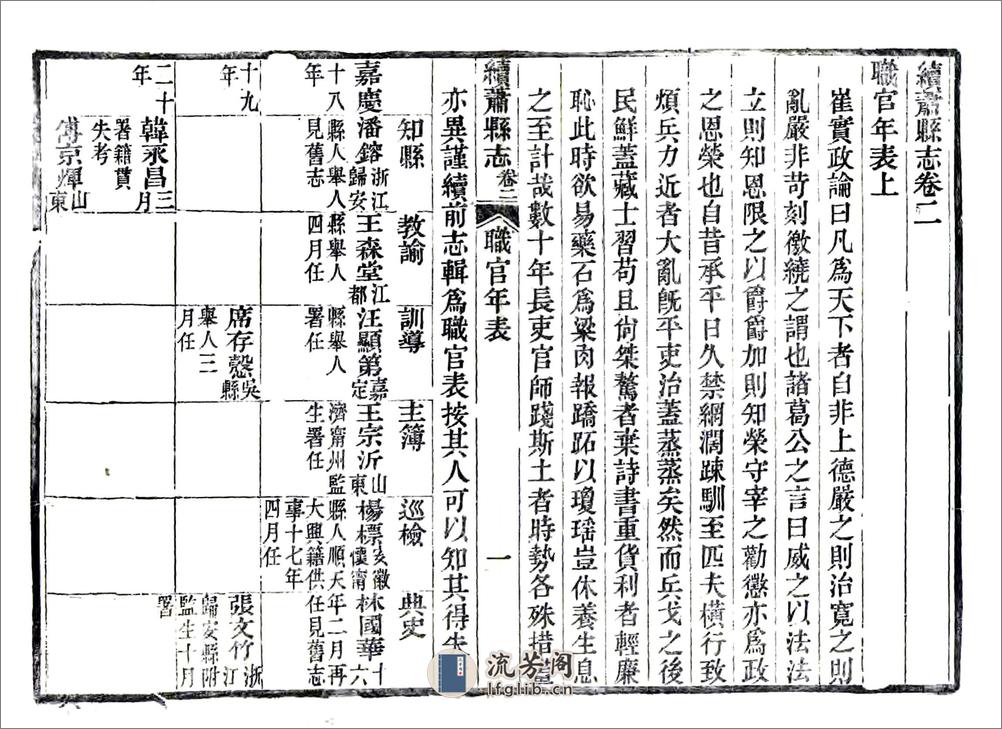 續蕭縣志卷二
職官年表上
崔實政論曰凡爲天下者自非上德嚴之則治寬之則
亂嚴非苛刻徼繞之謂也諸葛公之言曰威之以法法
立則知恩限之以爵爵加則知榮守宰之勸懲亦爲政
之恩榮也自昔承平日久禁網濶踈馴至匹夫橫行致
煩兵力近者大亂旣平吏治蓋蒸蒸矣然而兵戈之後
民鮮蓋藏士習苟且尙桀驁者棄詩書重貨利者輕廉
恥此時欲易藥石爲粱肉報蹻跖以瓊瑤豈休養生息
之至計哉數十年長吏官師踐斯土者時勢各殊措置
續蕭縣志
卷二
職官年表
一
亦異謹續前志輯爲職官表按其人可以知其得失
知縣
教諭
訓導
主簿
巡檢
典史
嘉慶
十八
年
潘鎔浙江歸安
縣人舉人
見舊志
王森堂江都
縣舉人
四月任
汪顯第嘉定
縣舉人
署任
王宗沂山東
濟甯州監
生署任
楊標安徽懷甯
縣人順天
大興籍供
事十七年
四月任
林國華十六
年二月再
任見舊志
十九
年
席存慤吳縣
舉人三
月任
張文竹浙江
歸安縣附
監生十月
署
二十
年
韓永昌三月
署籍貫
失考
傅京輝山東
流芳阁
lfglib.cn